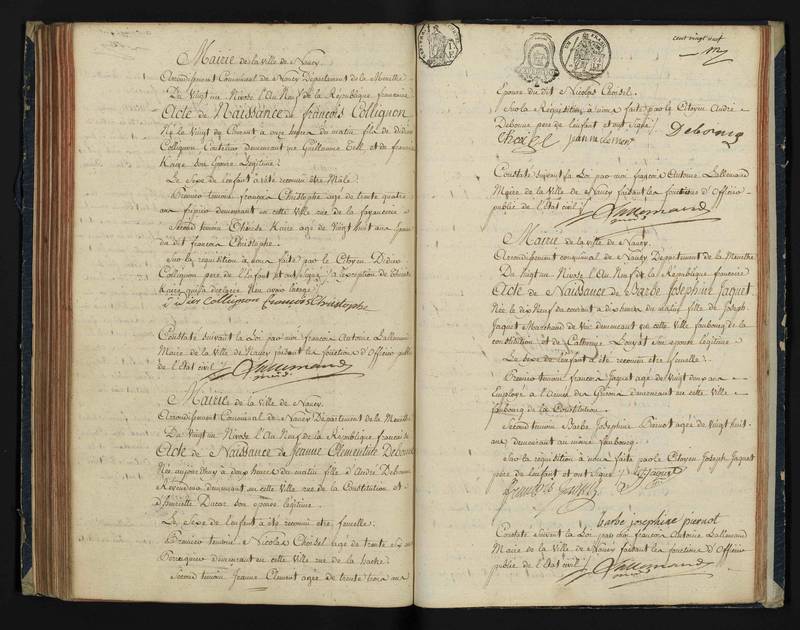 Mairie de la ville de Nancy
Arrondissement Communal de Nancy Département de la Meurthe
Du Vingt un Nivose l'An Neuf de la République francaise
Acte de Naissance de françois Collignon
Né le Vingt du Courant à onze heures du matin fils de Didier
Collignon demeurant rue Guillaume Tell et de françoise
Kaise son Epouse Légitime
Le Sexe de l'enfant a été reconnu être Male
Premier temoin françois Christophe agé de trente quatre
ans demeurant en cette Ville rue de la fayancerie
Second temoin Thérèse Kaise agée de Vingt huit ans Epouse
du dit françois Christophe
Sur la réquisition à nous faite par le Citoyen Didier
Collignon père de l'Enfant et ont signé à l'exception de Thérèse
Kaise qui a declaré Ne avoir l'usage
didier Collignon francois Christophe
Constaté suivant la Loi par moi françois Antoine Lallemand
Maire de la Ville de Nancy faisant les fonctions d'Officier public
de l'Etat civil Lallemand
Mairie de la Ville de Nancy
Arrondissement Communal de Nancy Département de la Meurthe
Du Vingt un Nivose l'An Neuf de la République francaise
Acte de Naissance de Jeanne Clementine Debonne
Née aujourdhuy à deux heures du matin fille d'André Debonne
Revendeur demeurant en cette Ville rue de la Constitution et
d'henriette Ducat son epouse légitime
Le Sexe de l'enfant a été reconnu etre femelle
Premier temoin Nicolas Choisel agé de trente
Perruquier demeurant en cette Ville rue de la hache
Second temoin Jeanne Clement agée de trente trois ans
cent vingt neuf
Epouse du dit Nicolas Choisel
Sur la Réquisition à nous faite par le Citoyen André
Debonne père de l'enfant et ont signé
Debonne
Constaté suivant la Loi par moi françois Antoine Lallemand
Maire de la Ville de Nancy faisant les fonctions d'Officier
public de l'Etat civil
Lallemand
Mairie de la ville de Nancy
Arrondissement communal de Nancy Département de la Meurthe
Du Vingt un Nivose l'An Neuf de la République francaise
Acte de Naissance de Barbe Josephine Jaquet
Née le dix Neuf du courant à dix heures du matin fille de Joseph
Jaquet Marchand de demeurant en cette Ville faubourg de la
constitution et de Catherine Louyot son epouse légitime
Le Sexe de l'enfant a été reconnu etre femelle
Premier temoin francois Jaquet agé de Vingt deux ans
Employé à l'armée du demeurant en cette Ville
faubourg de la Constitution
Second temoin Barbe Josephine Piernot agée de Vingt huit
ans demeurant au même faubourg
Sur la requisition à nous faite par le Citoyen Joseph Jaquet
père de l'enfant et ont Signé
J Jaquet
barbe josephine piernot
Constaté suivant la Loi par moi françois Antoine Lallemand
Maire de la Ville de Nancy faisant les fonctions d'Officier
public de l'Etat civil Lallemand